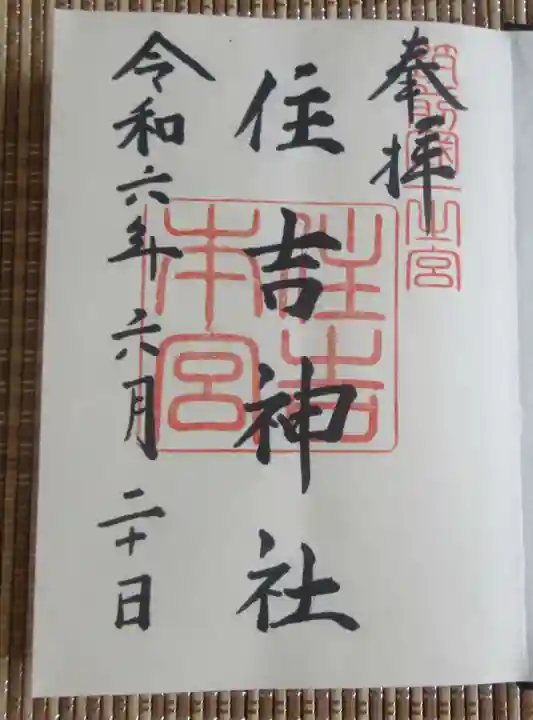 奉拝
筑前國一之宮
住吉神社
住吉本宮
令和六年六月二十日